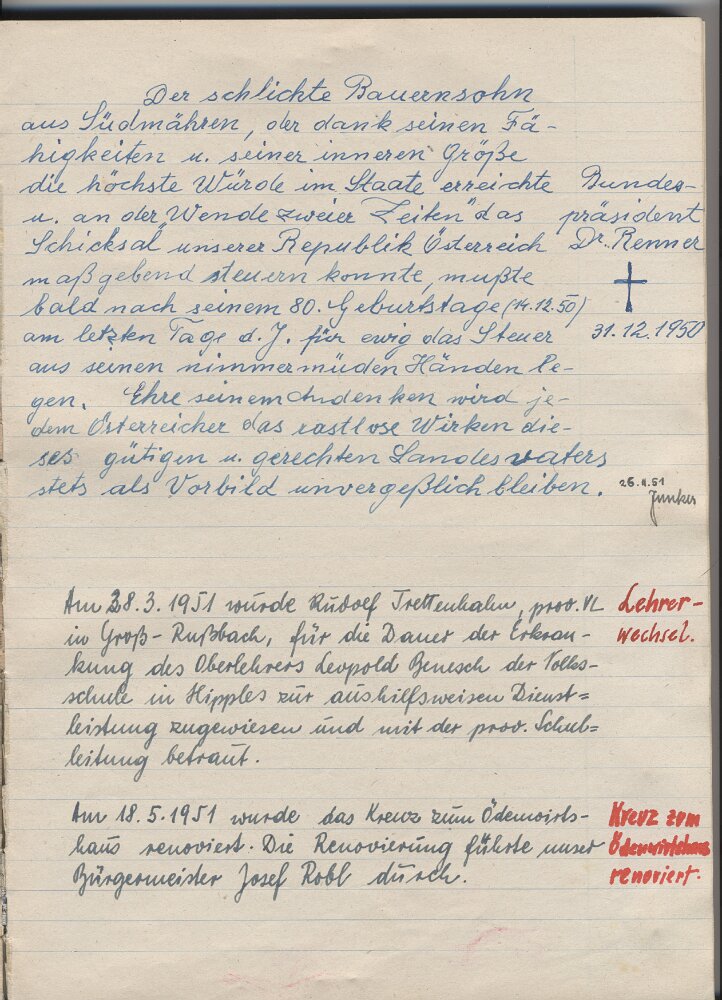 Der schlichte Bauernsohn
aus Südmähren, der dank seinen Fä-
higkeiten u. seiner inneren Größe
die höchste Würde im Staate erreichte
u. an der Wende zweier Zeiten das
Schicksal unserer Republik Österreich
maßgebend steuern konnte, mußte
bald nach seinem 80. Geburtstage (14.12.50)
am letzten Tage d. J. für ewig das Steuer
aus seinen nimmermüden Händen le-
gen. Ehre seinem Andenken wird je-
dem Österreicher das rastlose Wirken die-
ses gütigen u. gerechten Landesvaters
stets als Vorbild unvergeßlich bleiben.
Bundes-
präsident
Dr. Renner
31.12.1950
26.II.51
Junker
Am 28.3.1951 wurde Rudolf Trettenhahn, prov. VL
in Groß-Rußbach, für die Dauer der Erkran-
kung des Oberlehrers Leopold Benesch der Volks-
schule in Hipples zur aushilfsweisen Dienst=
leistung zugewiesen und mit der prov. Schul=
leitung betraut.
Lehrer-
wechsel.
Am 18.5.1951 wurde das Kreuz zum Ödenwirts-
haus renoviert. Die Renovierung führte unser
Bürgermeister Josef Robl durch.
Kreuz zum
Ödenwirtshaus
renoviert.